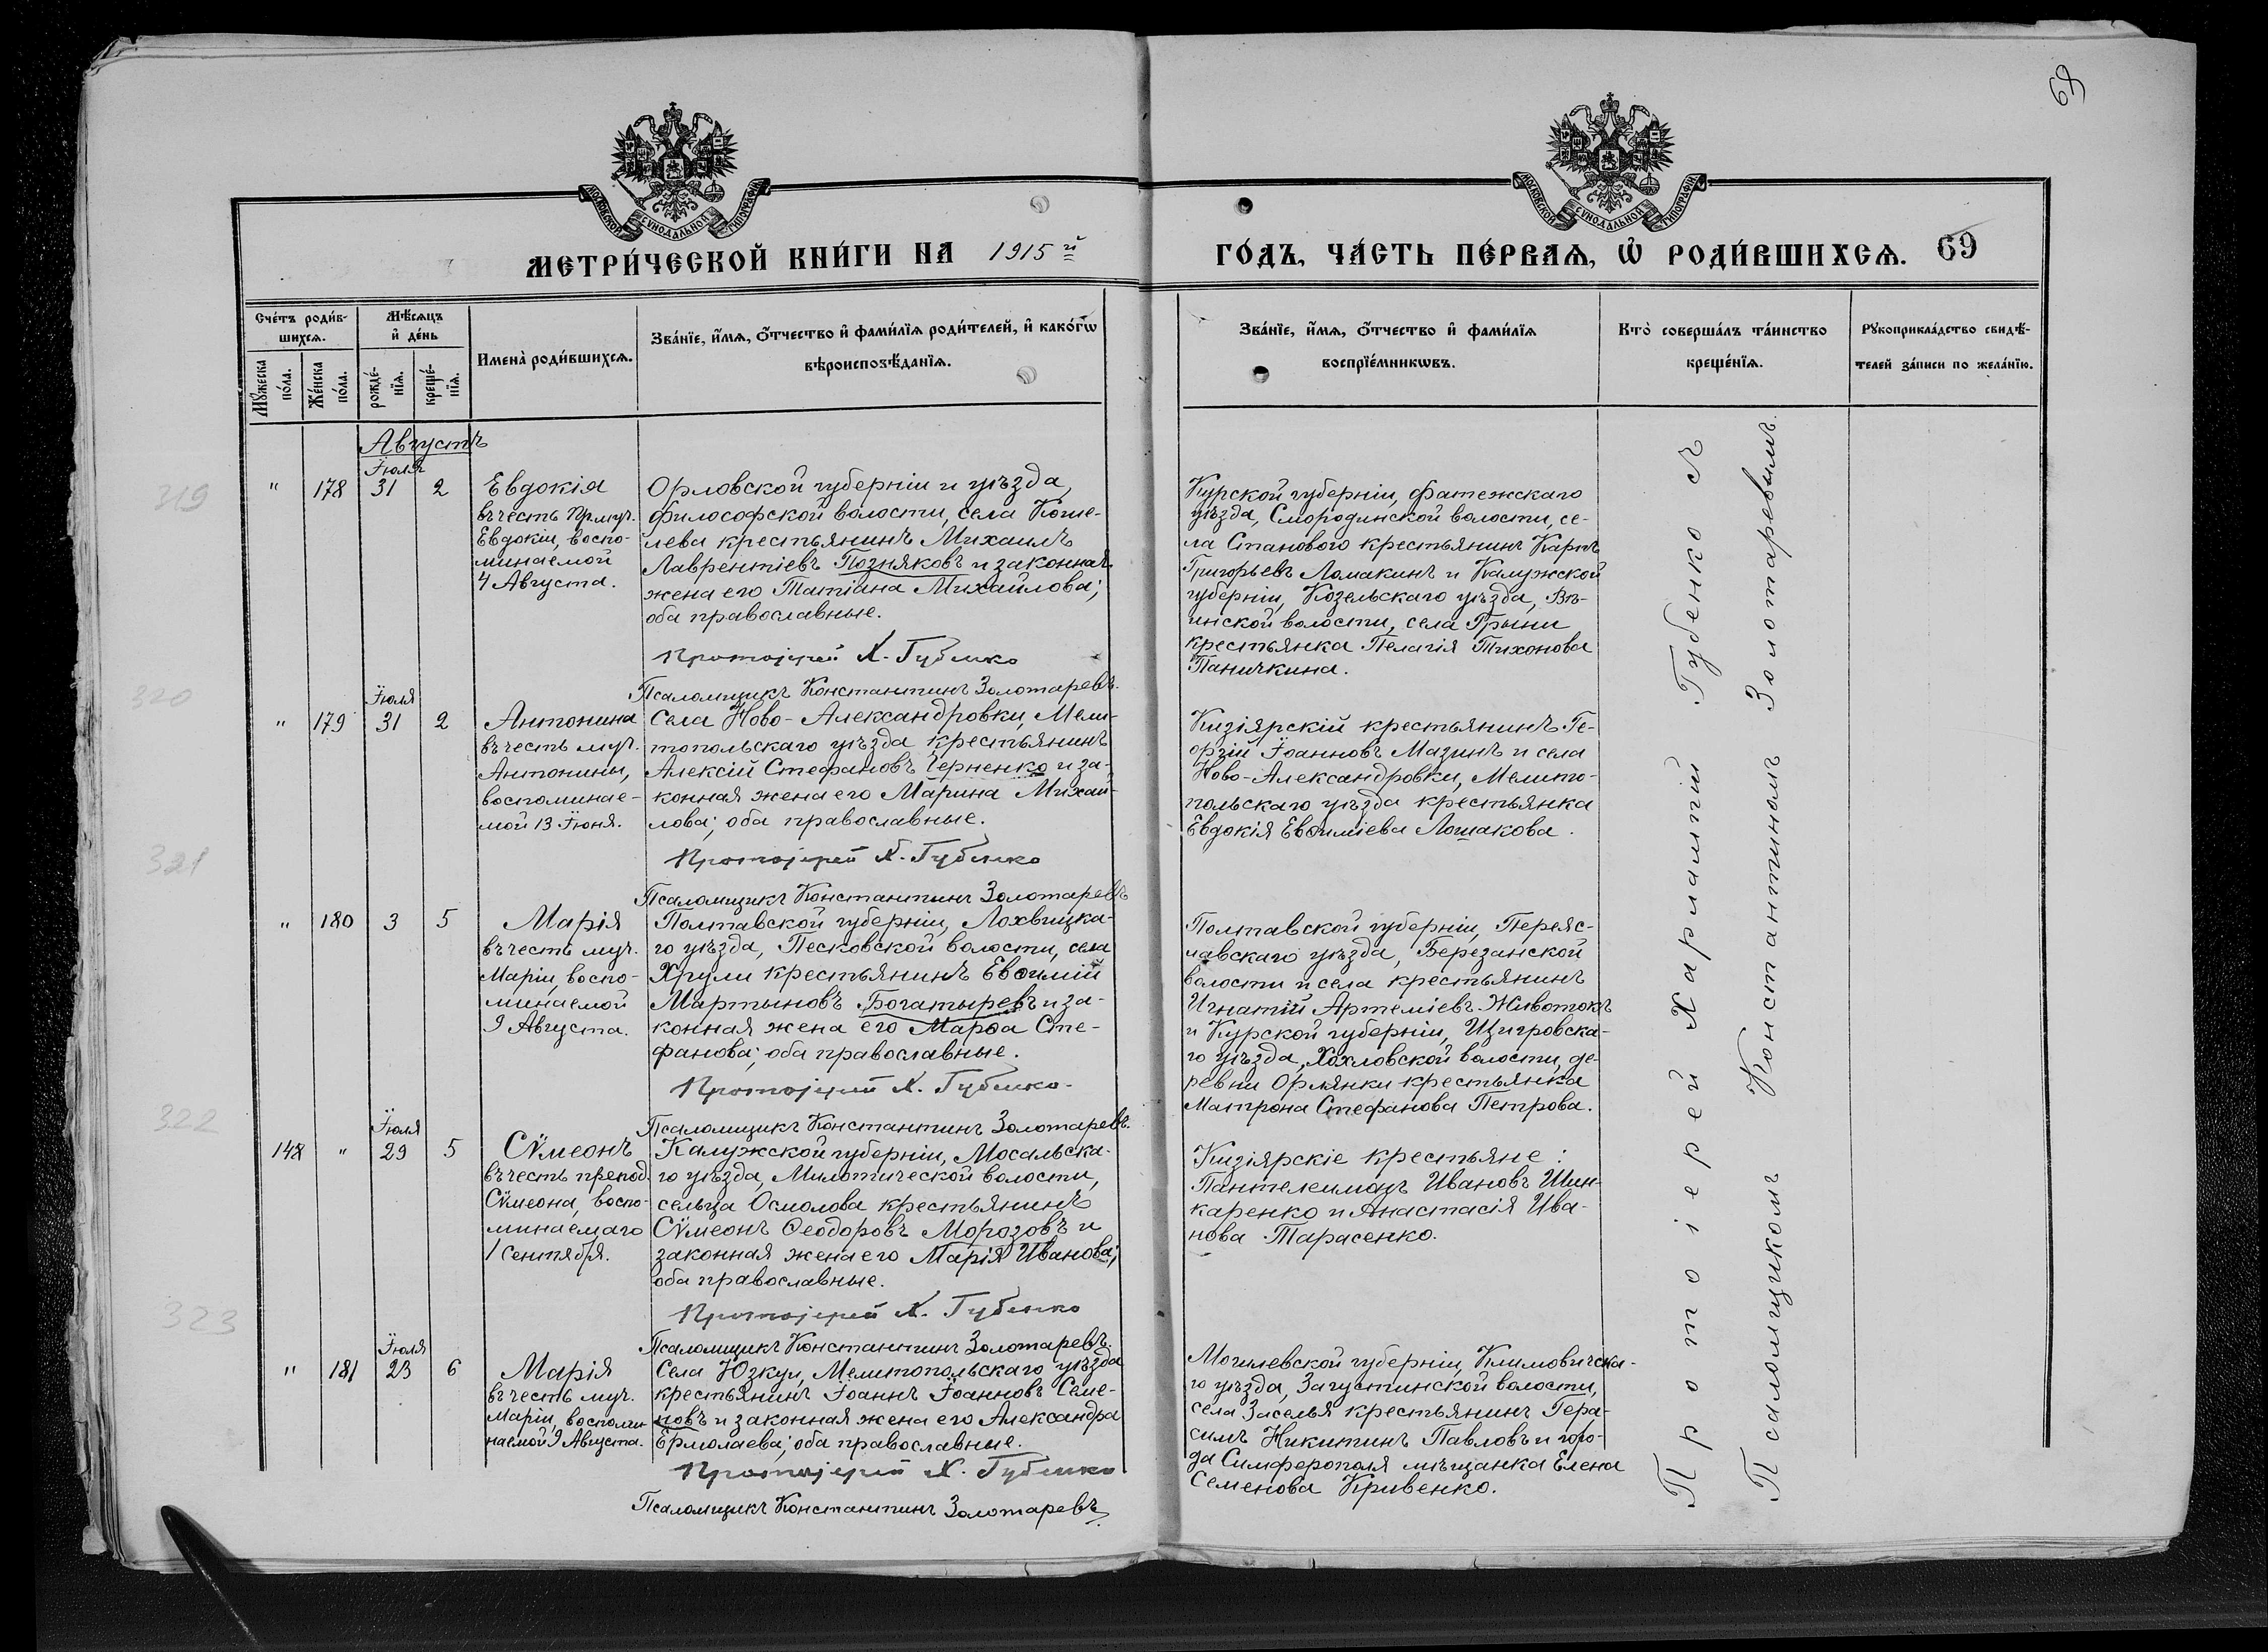 69
МОСКОВСКОЙ СѴНОДАЛЬНОЙ ТИПОГРАФІИ
МОСКОВСКОЙ СѴНОДАЛЬНОЙ ТИПОГРАФІИ
МЕТРИ́ЧЕСКОЙ КНИ́ГИ НА 1915й
ГО́ДЪ, ЧА́СТЬ ПЕ́РВАѦ, Ѡ҆ РОДИ́ВШИХСѦ. 69
Сче́тъ роди́в-
шихсѧ.
Мꙋ́жеска по́ла.
Же́нска по́ла.
Мѣ́сѧцъ
и҆ де́нь
рожде́-
нїѧ.
креще́-
нїѧ.
Имена̀ роди́вшихсѧ.
Зва́нїе, и҆́мѧ, ѻ҆́тчество и҆ фами́лїѧ роди́телей, и҆ како́гѡ
вѣроисповѣ́данїѧ.
Зва́нїе, и҆́мѧ, ѻ҆́тчество и҆ фами́лїѧ
воспрїе́мникѡвъ.
Кто̀ соверша́лъ та́инство
креще́нїѧ.
Рꙋкоприкла́дство свидѣ́-
телей за́писи по жела́нїю.
Августъ
319
" 178 Іюля 31 2
Евдокія
въ честь пр.муч.
Евдокіи, воспо-
минаемой
4 Августа.
Орловской губерніи и уѣзда,
философской волости, села Коше-
лева крестьянинъ Михаилъ
Лаврентіевъ Позняковъ и законная
жена его Татіана Михайлова;
оба православные.
Протоіерей Х. Губенко
Псаломщикъ Константинъ Золотаревъ.
Курской губерніи, фатежскаго
уѣзда, Смородинской волости, се-
ла Становаго крестьянинъ Карпъ
Григорьевъ Ломакинъ и Калужской
губерніи, Козельскаго уѣзда,
волости, села Грыни
крестьянка Пелагія Тихонова
Паничкина.
320
" 179 Іюля 31 2
Антонина
въ честь муч.
Антонины,
воспоминае-
мой 13 Іюня.
Села Ново-Александровки, Мели-
топольскаго уѣзда крестьянинъ
Алексій Стефановъ Черненко и за-
конная жена его Марина Михай-
лова; оба православные.
Протоіерей Х. Губенко
Псаломщикъ Константинъ Золотаревъ
Кизіярскій крестьянинъ Ге-
оргій Іоанновъ Мазинъ и села
Ново-Александровки, Мелито-
польскаго уѣзда крестьянка
Евдокія Евѳиміева Лошакова.
321
" 180 3 5
Марія
въ честь муч.
Маріи, воспо-
минаемой
9 Августа.
Полтавской губерніи, Лохвицка-
го уѣзда, Песковской волости, села
Хрули крестьянинъ Евѳимій
Мартыновъ Богатыревъ и за-
конная жена его Марѳа Сте-
фанова; оба православные.
Протоіерей Х. Губенко
Псаломщикъ Константинъ Золотаревъ.
Полтавской губерніи, Переяс-
лавскаго уѣзда, Березанской
волости и села крестьянинъ
Игнатій Артеміевъ Животокъ
и Курской губерніи, Щигровска-
го уѣзда, Хохловской волости, де-
ревни Орлянки крестьянка
Матрона Стефанова Петрова.
322
148 " Іюля 29 5
Сѵмеонъ
въ честь препод.
Сѵмеона, воспо-
минаемаго
1 Сентября.
Калужской губерніи, Мосальска-
го уѣзда, Милотической волости,
сельца Осмолова крестьянинъ
Сѵмеонъ Ѳеодоровъ Морозовъ и
законная жена его Марія Иванова;
оба православные.
Протоіерей Х. Губенко
Псаломщикъ Константинъ Золотаревъ.
Кизіярскіе крестьяне:
Пантелеимонъ Ивановъ Шин-
каренко и Анастасія Ива-
нова Тарасенко.
323
" 181 Іюля 23 6
Марія
въ честь муч.
Маріи, воспоми-
наемой 9 Августа.
Села Юзкуи, Мелитопольскаго уѣзда
крестьянинъ Іоаннъ Іоанновъ Семе-
новъ и законная жена его Александра
Ермолаева; оба православные.
Протоіерей Х. Губенко
Псаломщикъ Константинъ Золотаревъ
Могилевской губерніи, Климовичска-
го уѣзда, Загустинской волости,
села Заселья крестьянинъ Гера-
симъ Никитинъ Павловъ и горо-
да Симферополя мѣщанка Елена
Семенова Кривенко.
Протоіерей Харлампій Губенко съ
Псаломщикомъ Константиномъ Золотаревымъ.